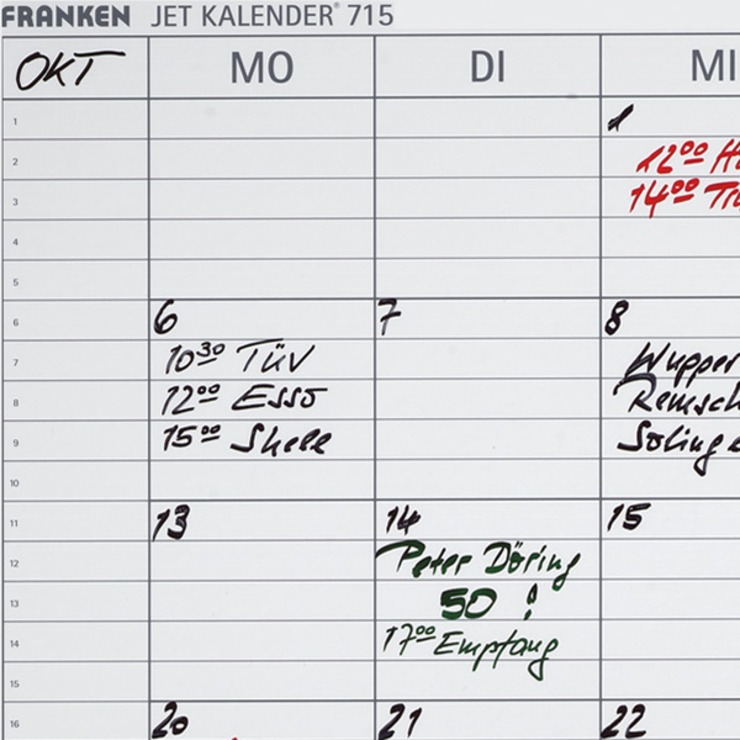 FRANKEN JET KALENDER® 715
OKT MO DI MI
1 1
2 12⁰⁰
3 14⁰⁰
4
5
6 6 7 8
7 10³⁰ TÜV Wupper
8 12⁰⁰ Esso Remsch
9 15⁰⁰ Shell Soling
10
11 13 14 15
12 Peter Döring
13 50 !
14 17⁰⁰ Empfang
15
16 20 21 22